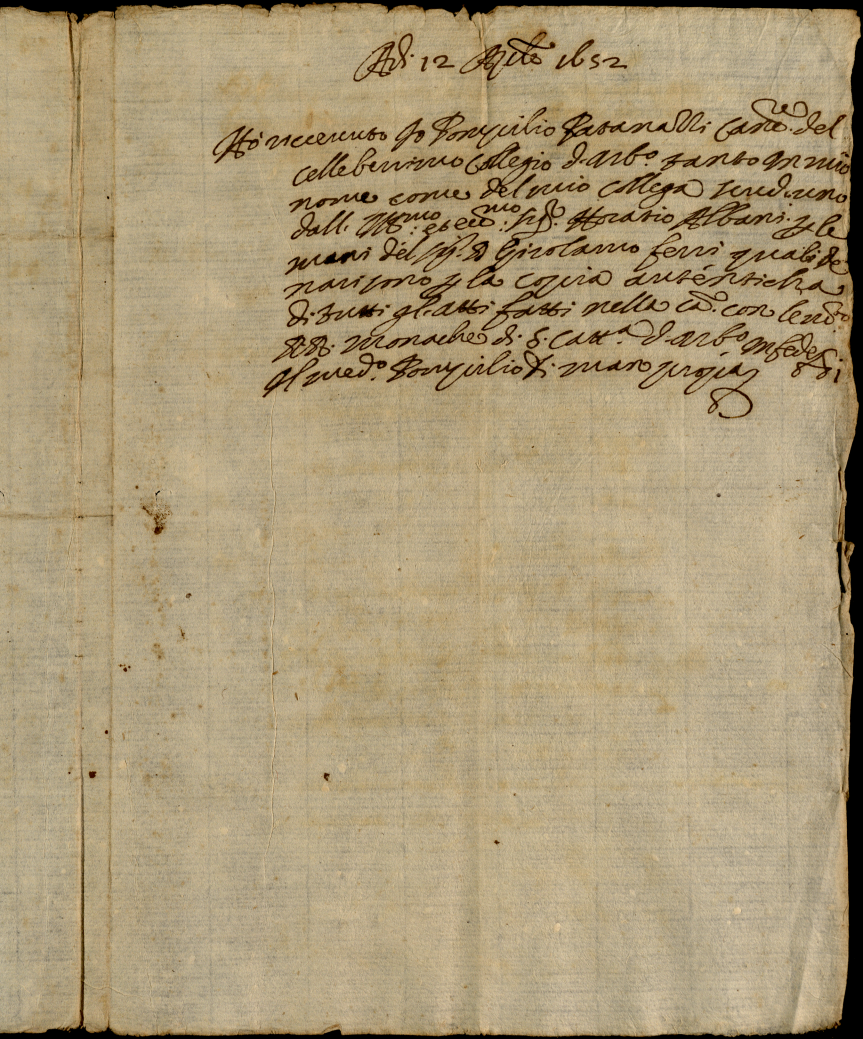 Adi 12 Aple 1652
Hò riceuuto Io Pompilio Patanalli Canc.re del
celleberrimo Collegio d'urb.o tanto In mio
nome come del mio Collega scudi uno
dall. Ill.mo et ecc.mo sig.re Horatio Albani p le
mani del sig. D Girolamo ferri quali de
nari sono p la copia auténticha
di tutti gl. atti fatti nella ca. con le
RR. monache di S. Catt.a d'urb.o In fede
Il med.o Pompilio di mano propia